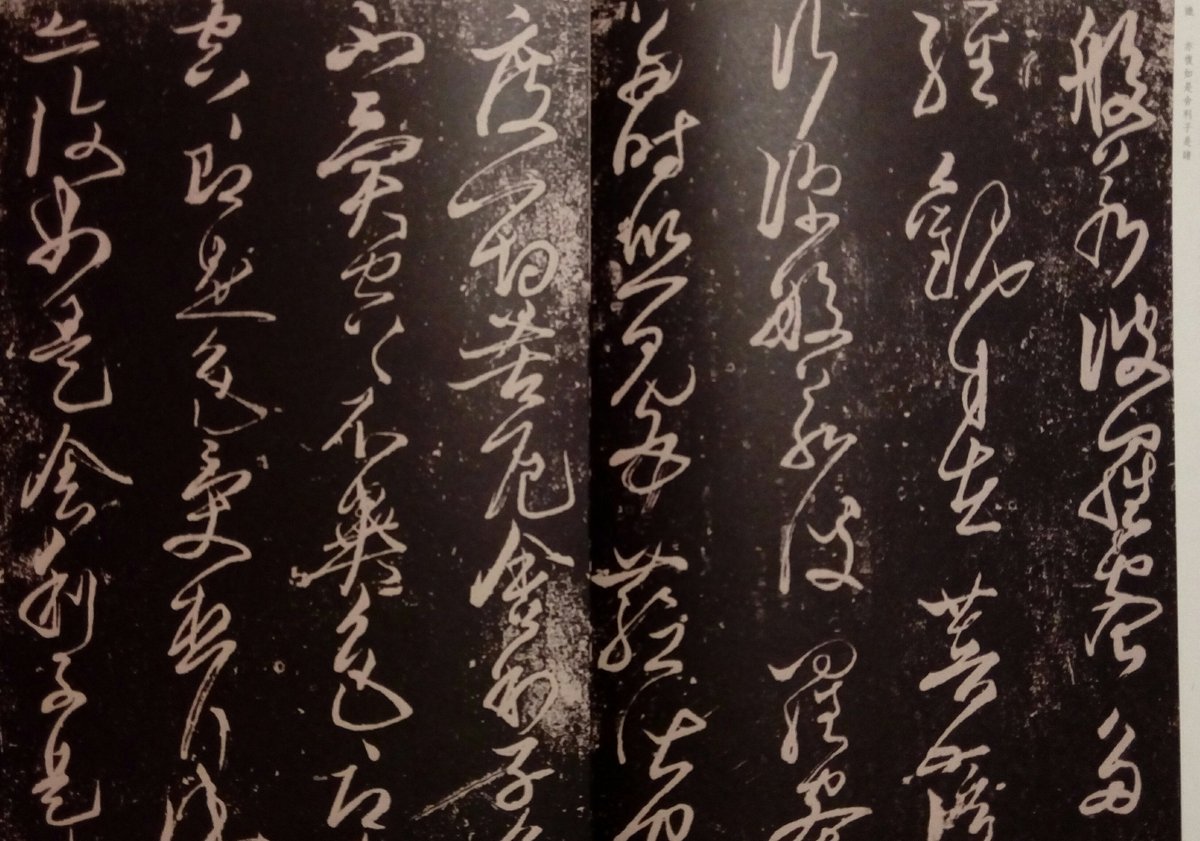 般若波羅蜜多
經觀自在菩薩
行深般若波羅蜜
多時照見五蘊皆空
度一切苦厄舍利子色
不異空〻不異色〻即
空〻即是色受想行識
亦復如是舍利子是
亦復如是舍利子是諸